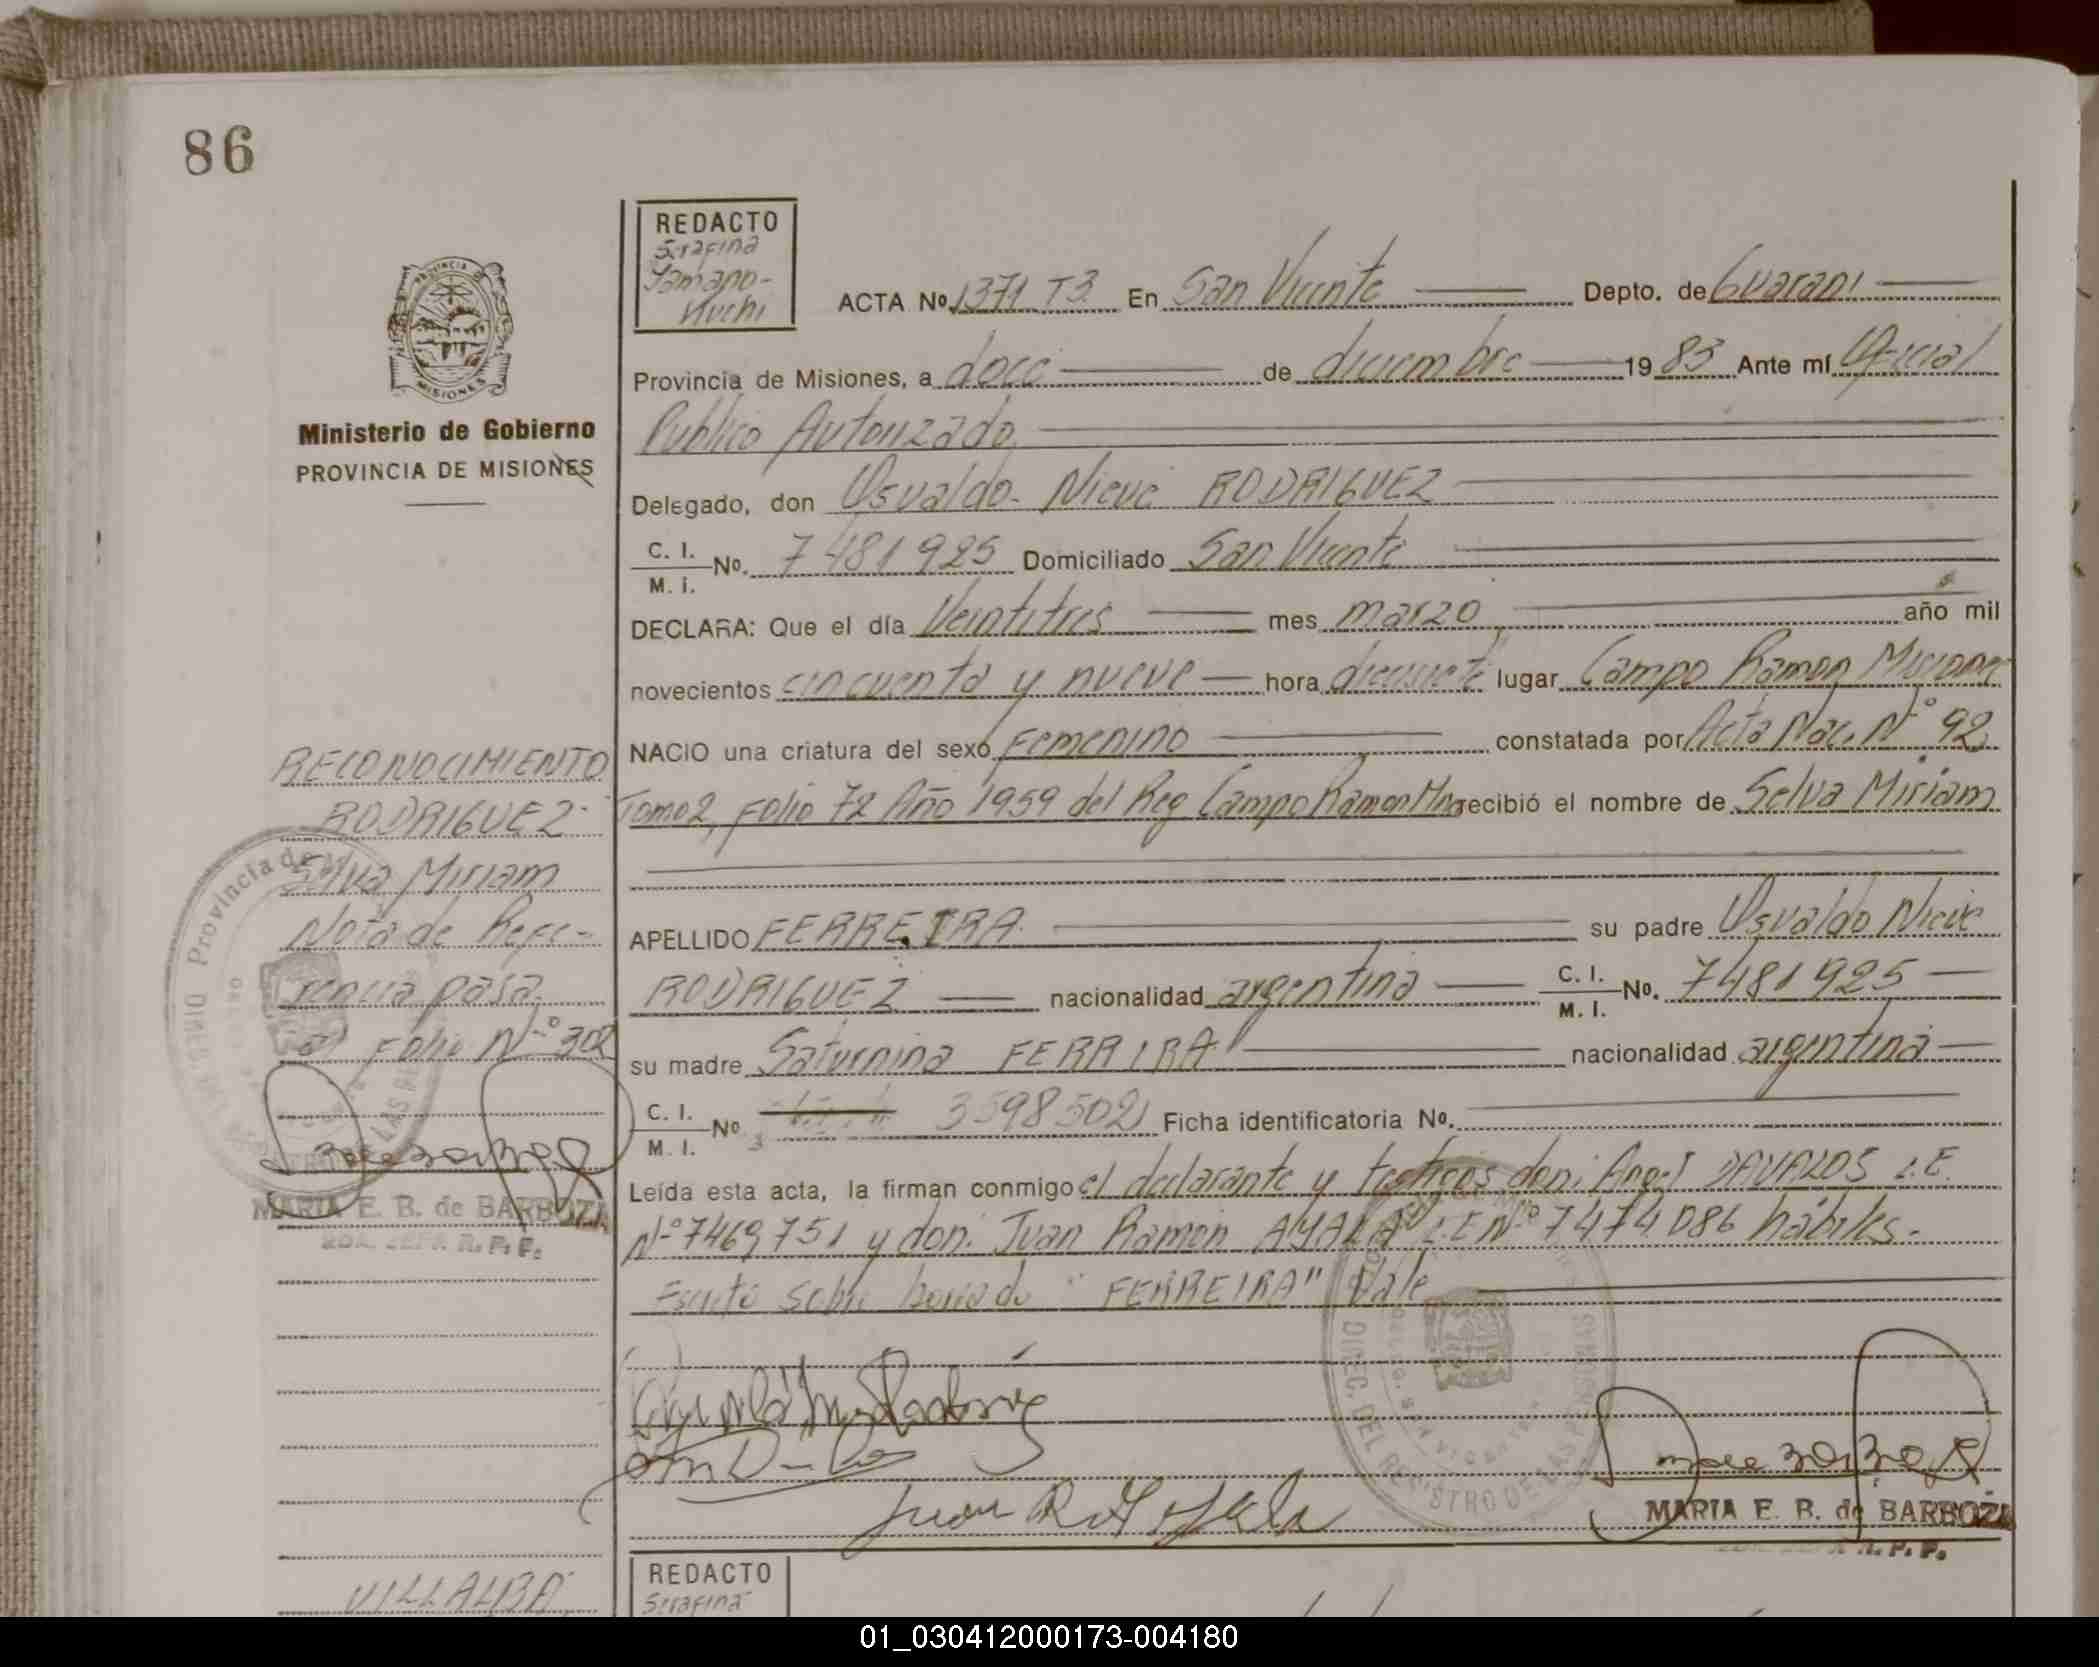 86
REDACTO
Serafina
Yamano-
kuchi
ACTA No. 1371 T3. En San Vicente Depto. de Guarani
Provincia de Misiones, a doce de diciembre 1983 Ante mí Oficial
Publico Autorizado
Delegado, don Osvaldo Nieve RODRIGUEZ
C. I.
M. I. No. 7481925 Domiciliado San Vicente
DECLARA: Que el día Veintitres mes marzo año mil
novecientos cincuenta y nueve hora diecisiete lugar Campo Ramon Misiones
NACIO una criatura del sexo Femenino constatada por Acta Nac. N° 92
Tomo 2, Folio 72 Año 1959 del Reg. Campo Ramon Mnes recibió el nombre de Selva Miriam
APELLIDO FERREIRA su padre Osvaldo Nieve
RODRIGUEZ nacionalidad argentina C. I.
M. I. No. 7481925
su madre Saturnina FERRIRA nacionalidad argentina
C. I.
M. I. No 3598502 Ficha identificatoria No.
Leída esta acta, la firman conmigo el declarante y testigos don: Angel DAVALOS L.E.
N° 7469751 y don: Juan Ramon AYALA L.E N° 7474086 hábiles.
Escrito sobre borrado "FERREIRA" Vale
MARIA E. B. de BARBOZA
R. P. P.
Ministerio de Gobierno
PROVINCIA DE MISIONES
PROVINCIA DE
MISIONES
RECONOCIMIENTO
RODRIGUEZ
Selva Miriam
Nota de Refe-
rencia pasa
al Folio N° 302
MARIA E. B. de BARBOZA
2DA. JEFA R. P. P.
Provincia de
DIREC. DEL REGISTRO DE LAS PERSONAS
VILLALBA
REDACTO
Serafina
01_030412000173-004180